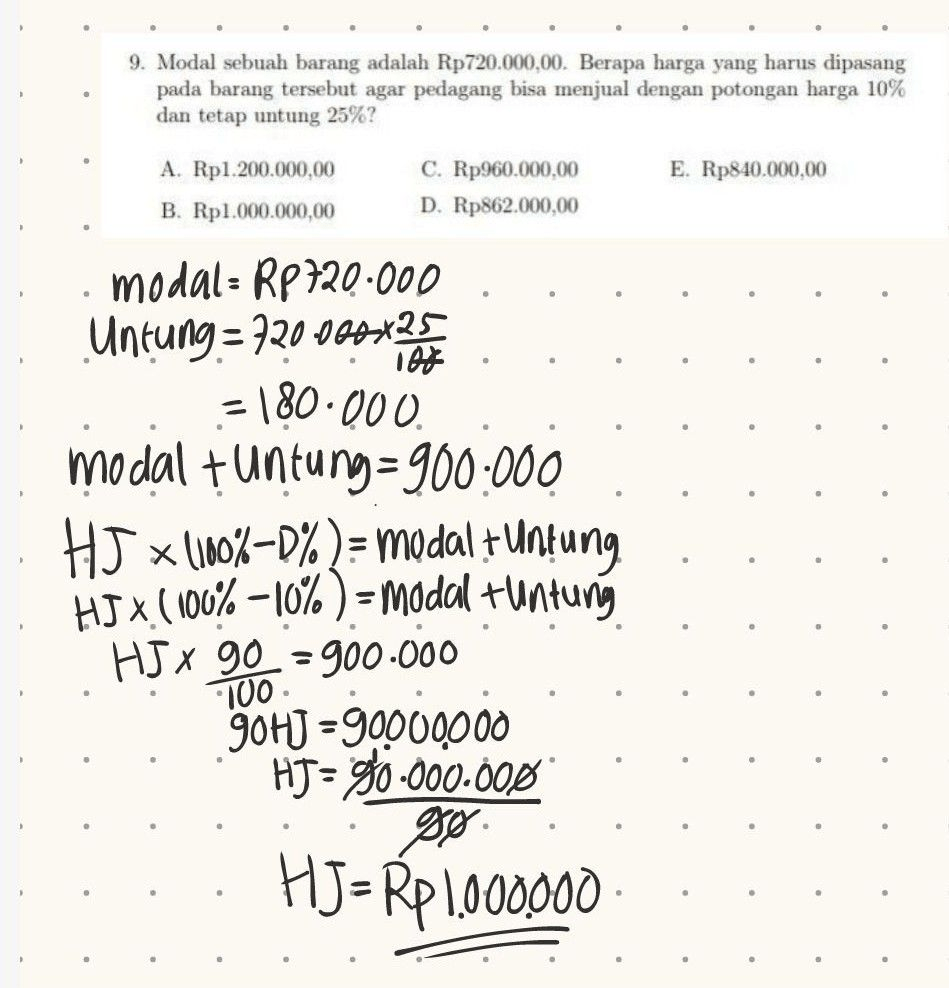 9. Modal sebuah barang adalah Rp720.000,00. Berapa harga yang harus dipasang
pada barang tersebut agar pedagang bisa menjual dengan potongan harga 10%
dan tetap untung 25%?
A. Rp1.200.000,00 C. Rp960.000,00 E. Rp840.000,00
B. Rp1.000.000,00 D. Rp862.000,00
modal = Rp720.000
Untung = 720.000 x 25/100
= 180.000
modal + Untung = 900.000
HJ x (100% - D%) = modal + Untung
HJ x (100% - 10%) = modal + Untung
HJ x 90/100 = 900.000
90HJ = 90.000.000
HJ = 90.000.000/90
HJ = Rp1.000.000